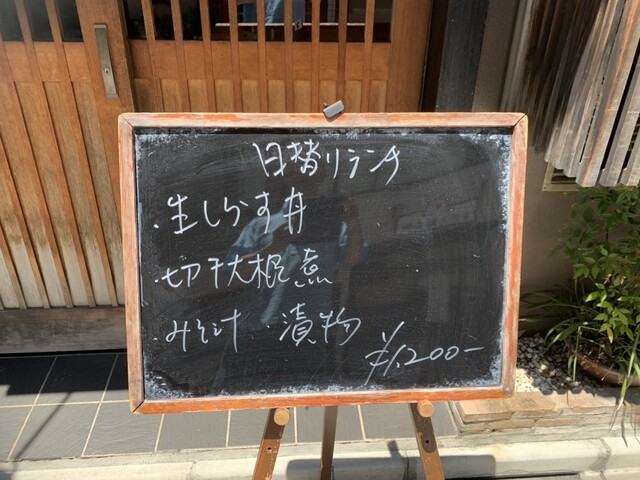 日替リランチ
・生しらす丼
・切干大根煮
・みそ汁 ・漬物
¥1,200-